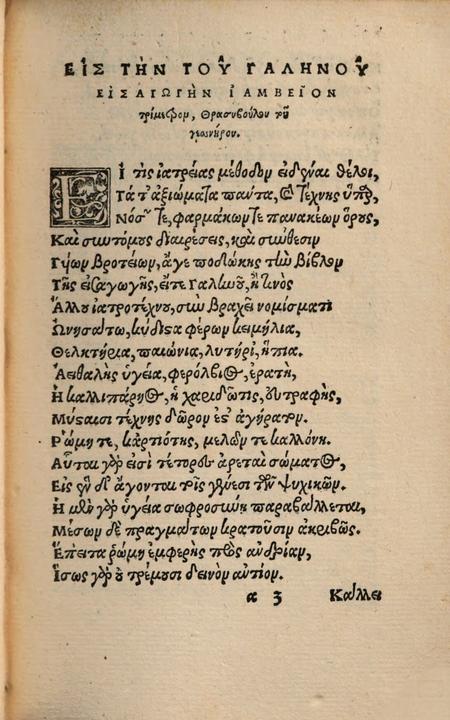 ΕἸΣ ΤῊΝ ΤΟΥ͂ ΓΑΛΗΝΟΥ͂
ΕΙΣΑΓΩΓῊΝ ἸΑΜΒΕΙ͂ΟΝ
τρίμετρον, Θρασυβούλου τοῦ
Εἴ τις ἰατρείας μέθοδον εἰδέναι θέλει,
Τά τ' ἀξιώματα παντα, καὶ τέχνης
Νόσων τε, φαρμάκων τε πανακέων ὅρους,
Καὶ συντόμους διαιρέσεις, καὶ σύνθεσιν
Γύων βροτείων, ἄγε ποδώκης τὼν βίβλον
Τῆς εἰσαγωγῆς, εἴτε Γαλίωοῦ, ἤ τινὸς
Ἄλλου ἰατροτέχνου, σὺν βραχεῖ νομίσματι
Ὠνησάτω, κύδιστα φέρων κειμήλια,
Θελκτήρια, παιώνια, λυτήρι', ἤπια.
Ἀειθαλὴς ὑγεία, φερόλβιος, ἐρατὴ,
Ἡ καλλιπάρῃος, ἡ χαριδῶτις, εὐτραφὴς,
Μύσαισι τέχνης δῶρον ἔστ' ἀγήρατον.
Ῥώμη τε, κἀρτιότης, μελῶν τε καλλόνη.
Αὗται γὰρ εἰσὶ τέτορες ἀρεταὶ σώματος,
Εἰς ἃν δὲ ἄγονται τρὶς γένεσι τῶν ψυχικῶν.
Ἡ μὲν γὰρ ὑγεία σωφροσύνῃ παραβάλλεται,
Μέσων δὲ πραγμάτων κρατοῦσιν ἀκριβῶς.
Ἔπειτα ῥώμη ἐμφερὴς πῶς ἀνδρίαν,
Ἴσως γὰρ οὐ τρέμουσι δεινὸν αὐτίον.
a 3 Κάλλει